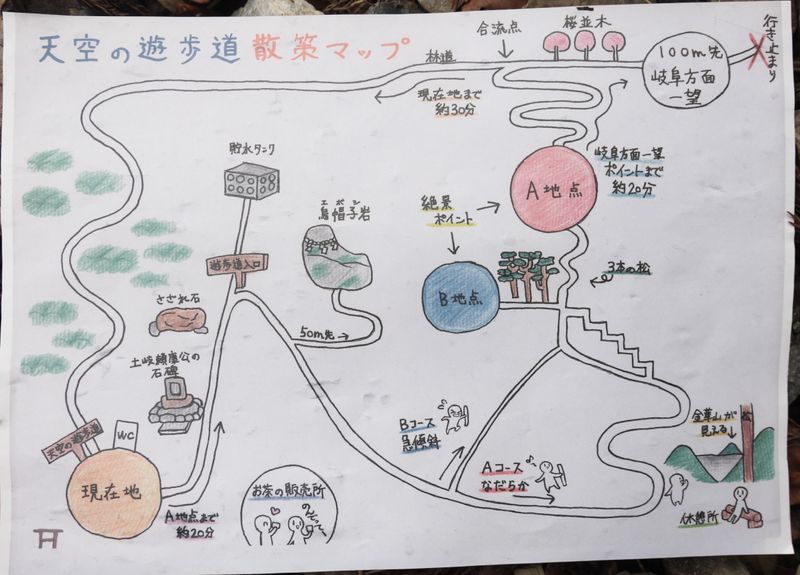 天空の遊歩道 散策マップ
合流点
桜並木
行き止まり
林道
100m先
岐阜方面
一望
現在地まで
約30分
貯水タンク
エボシ
烏帽子岩
絶景
ポイント
A地点
岐阜方面一望
ポイントまで
約20分
遊歩道入口
B地点
3本の松
さざれ石
50m先→
土岐頼藝公の
石碑
Bコース
急傾斜
金華山が
見える
松
天空の遊歩道
WC
現在地
Aコース
なだらか
A地点まで
約20分
お茶の販売所
休憩所